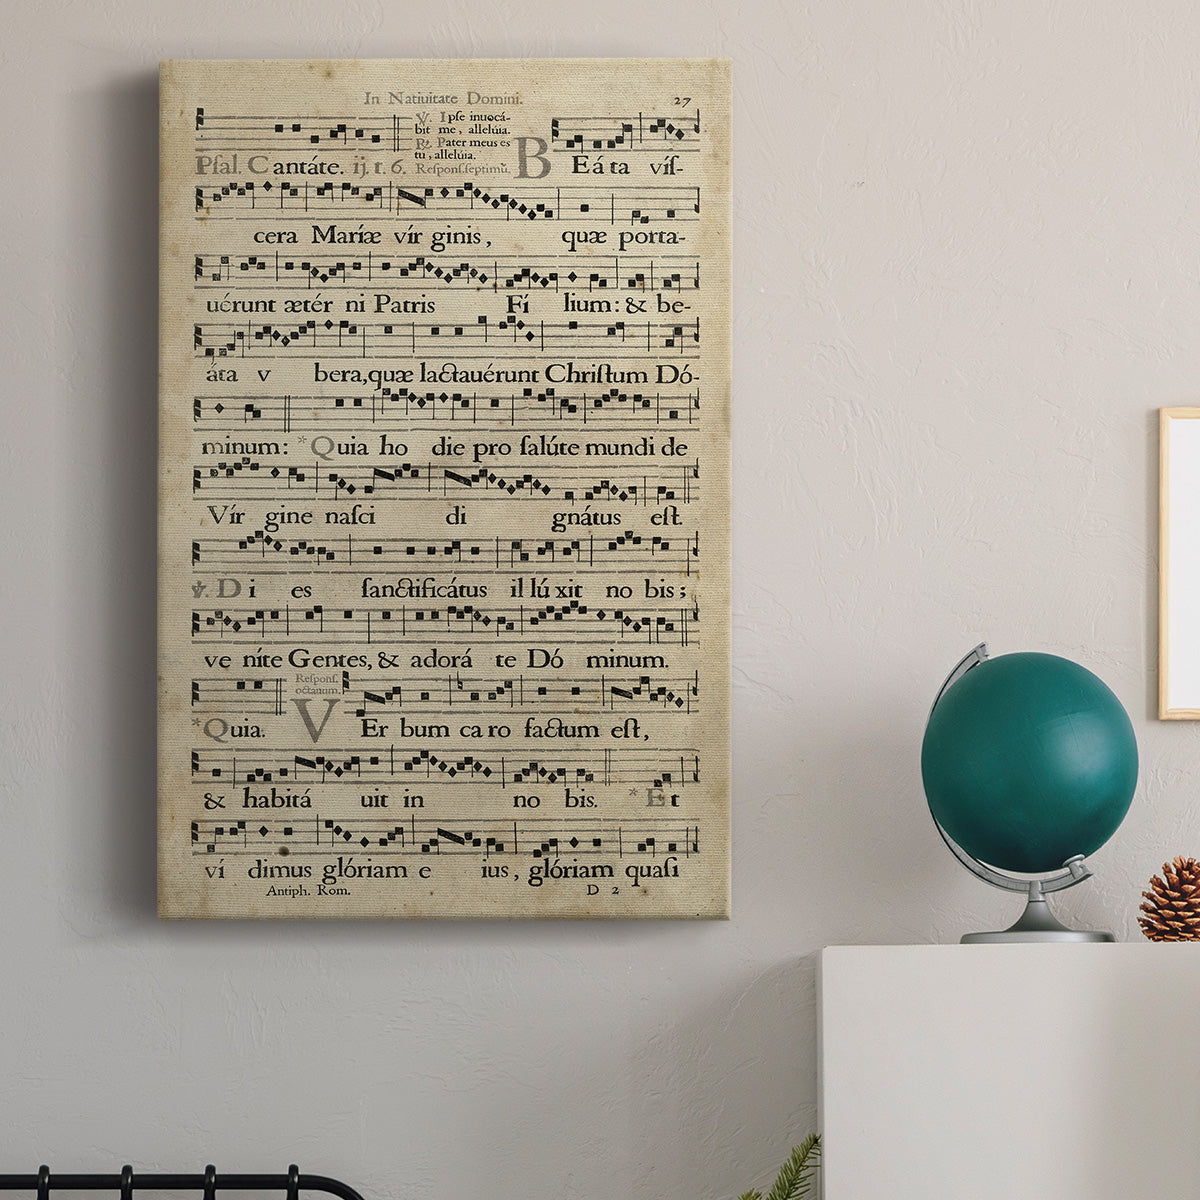 In Natiuitate Domini. 27
℣. Ipſe inuocá-
bit me, allelúia.
℟. Pater meus es
tu, allelúia.
Pſal. Cantáte. ij. t. 6. Reſponſ. ſeptimũ. BEáta víſ-
cera Maríæ vír ginis, quæ porta-
uérunt ætér ni Patris Fí lium: & be-
áta v bera, quæ lactauérunt Chriſtum Dó-
minum: *Quia ho die pro ſalúte mundi de
Vír gine naſci di gnátus eſt.
℣. Di es ſanctificátus il lú xit no bis;
ve níte Gentes, & adorá te Dó minum.
Reſponſ.
octauum.
*Quia. VEr bum ca ro factum eſt,
& habitá uit in no bis. *Et
ví dimus glóriam e ius, glóriam quaſi
Antiph. Rom. D 2